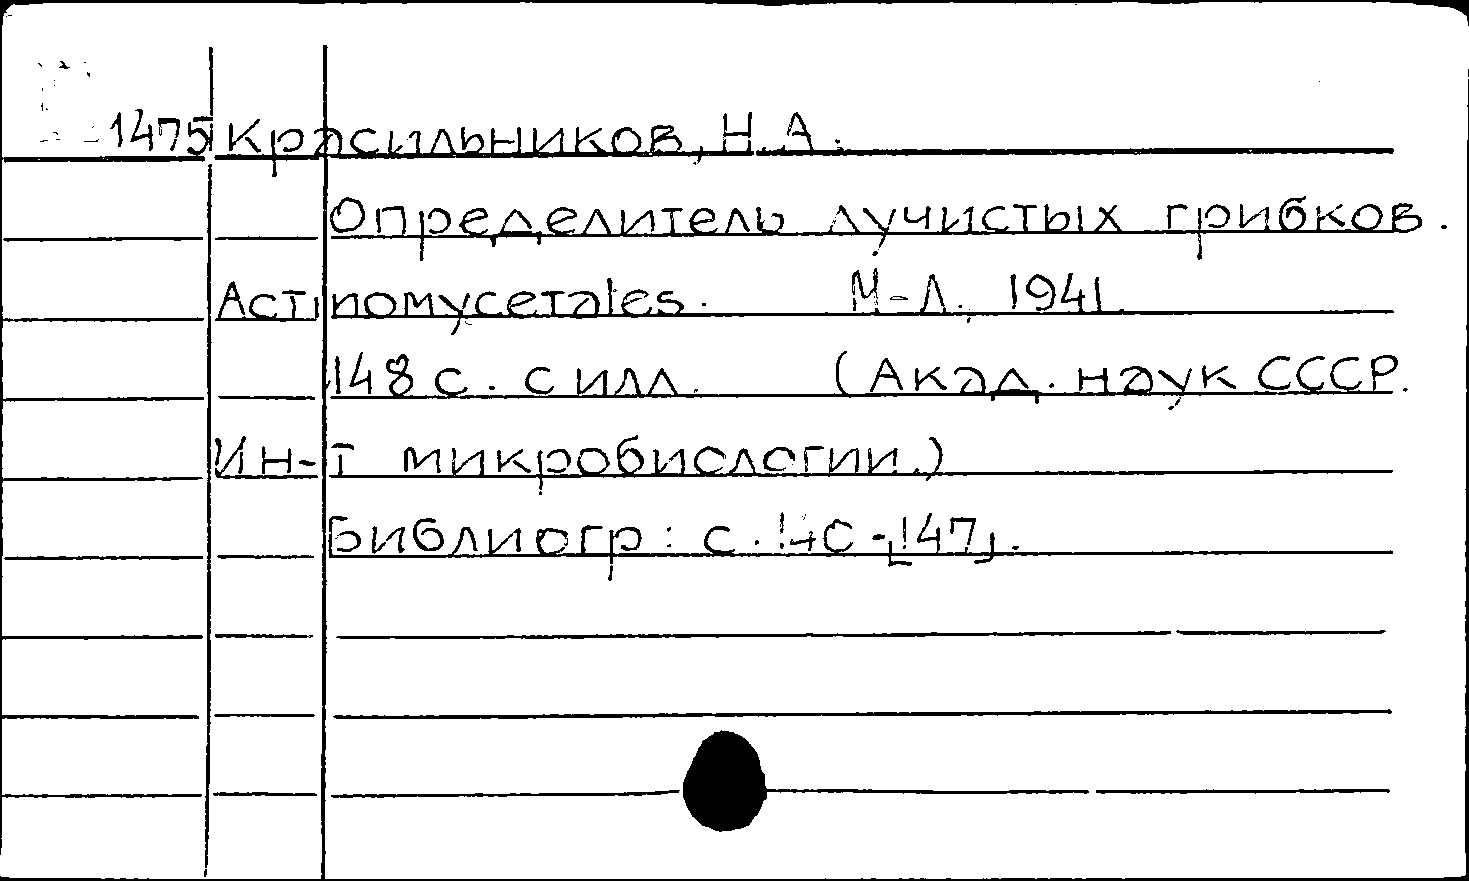 1475 Красильников, Н.А.
Определитель лучистых грибков.
Actinomycetales. М-Л., 1941.
148 с. с илл. (Акад. наук СССР.
Ин-т микробиологии.)
Библиогр: с. 140-[147].